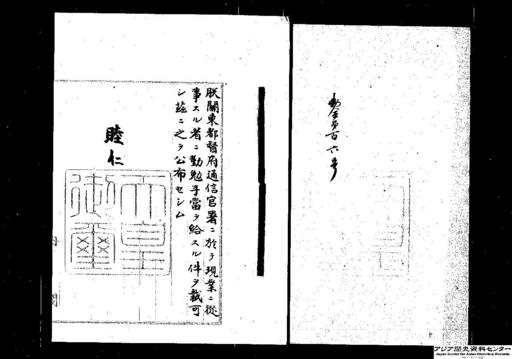 勅令第百六号
朕關東都督府通信官署ニ於テ現業ニ從
事スル者ニ勤勉手當ヲ給スル件ヲ裁可
シ茲ニ之ヲ公布セシム
睦仁
天皇
御璽
アジア歴史資料センター
Japan Center for Asian Historical Records